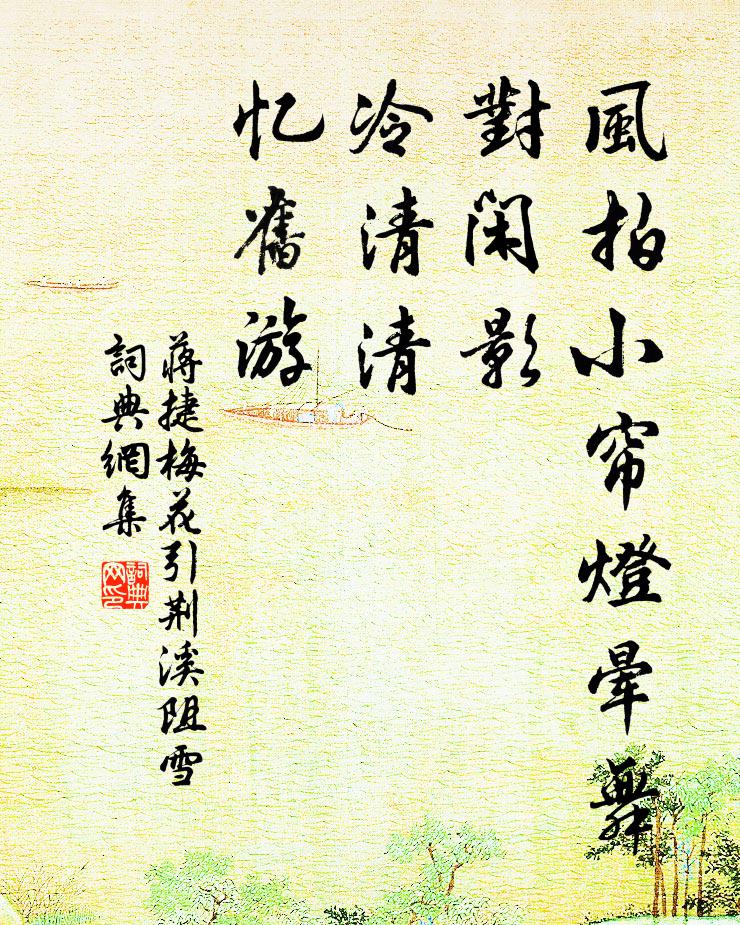 風拍小帘燈暈舞
對閑影
冷清清
忆舊游
蔣捷梅花引荆溪阻雪
詞典網集
詞典网印